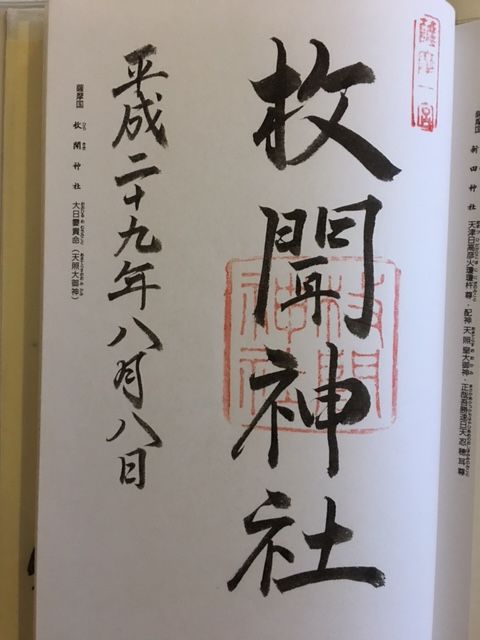 薩摩一宮
枚聞神社
枚聞神社
平成二十九年八月八日
薩摩国 枚聞神社 大日孁貴命(天照大御神)
薩摩国 新田神社 天津日高彦火瓊瓊杵尊・配神 天照皇大御神・正哉吾勝々速日天忍穂耳尊